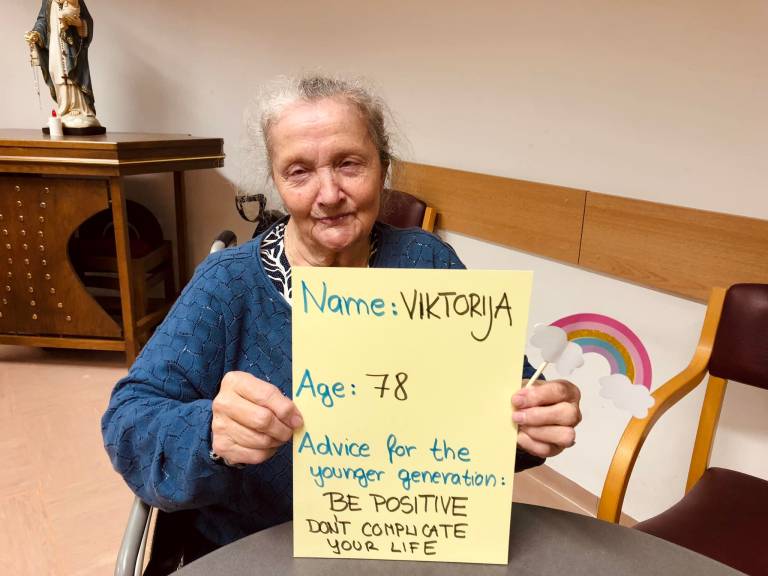 Name: VIKTORIJA
Age: 78
Advice for the
younger generation:
BE POSITIVE
DONT COMPLICATE
YOUR LIFE